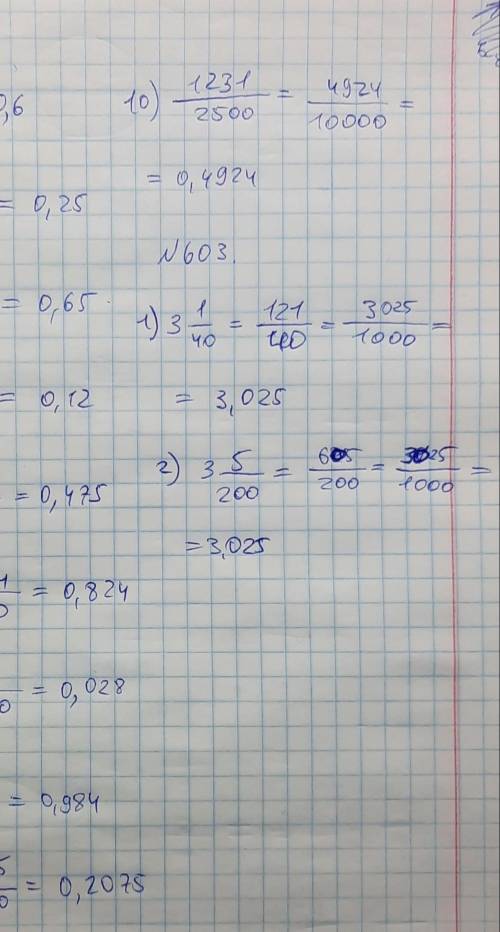 0,6
= 0,25
= 0,65
= 0,12
= 0,475
1/0 = 0,824
0 = 0,028
= 0,984
5/0 = 0,2075
10) 1231/2500 = 4924/10000 =
= 0,4924
№603.
1) 3 1/40 = 121/40 = 3025/1000 =
= 3,025
2) 3 5/200 = 605/200 = 3025/1000 =
= 3,025